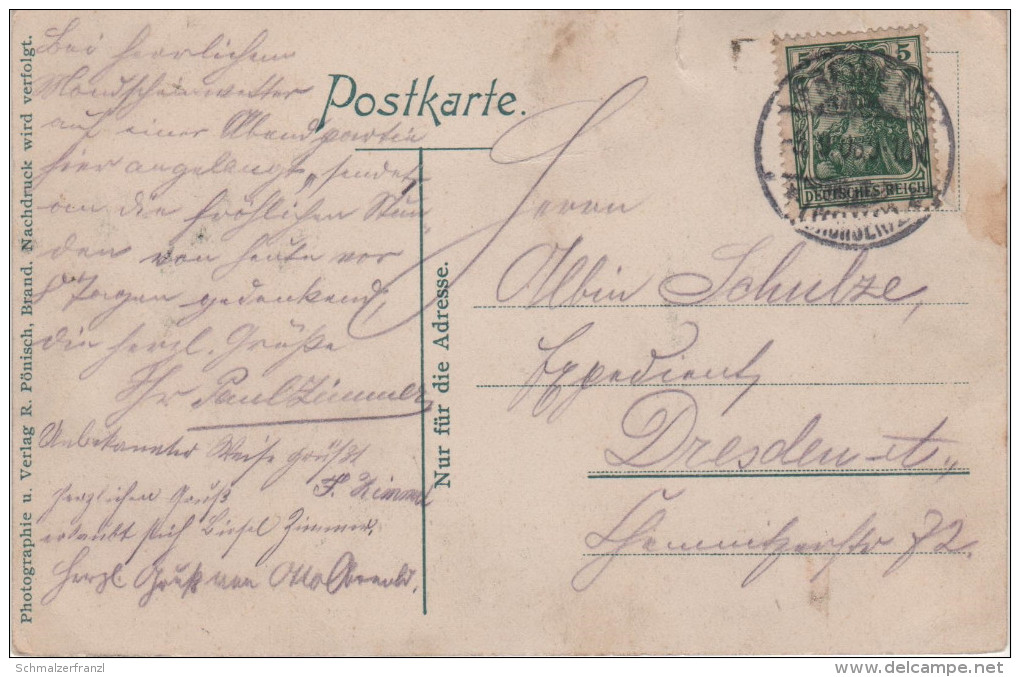 Photographie u. Verlag R. Pönisch, Brand. Nachdruck wird verfolgt.
Bei herrlichem
Mondscheinwetter
auf einer Abendpartie
hier angelangt, sendet
an die fröhlichen Stun
den von heute vor
8 Tagen gedenkend,
die herzl. Grüße
Ihr Paul Zimmer
Unbekannter Weise grüßt
F. Zimmer
herzlichen Gruß
erlaubt sich Zimmer.
Herzl. Gruß von Otto
Postkarte.
Nur für die Adresse.
5 5
DEUTSCHES REICH
Herrn
Albin Schulze,
Expedient,
Dresden-A.,
Chemnitzerstr 72.
Schmalzerfranzl
www.delcampe.net